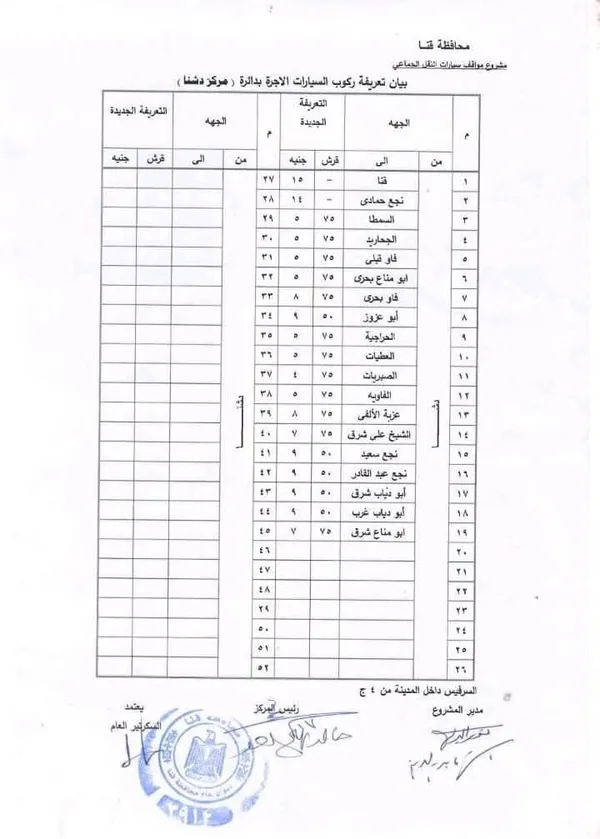 محافظة قنا
مشروع مواقف سيارات النقل الجماعي
بيان تعريفة ركوب السيارات الاجرة بدائرة ( مركز دشنا )
م الجهه التعريفة الجديدة م الجهه التعريفة الجديدة
من الى قرش جنيه من الى قرش جنيه
دشنا دشنا
١ قنا - ١٥ ٢٧
٢ نجع حمادى - ١٤ ٢٨
٣ السمطا ٧٥ ٥ ٢٩
٤ الجحاريد ٧٥ ٥ ٣٠
٥ فاو قبلى ٧٥ ٥ ٣١
٦ ابو مناع بحرى ٧٥ ٥ ٣٢
٧ فاو بحرى ٧٥ ٨ ٣٣
٨ أبو عزوز ٥٠ ٩ ٣٤
٩ الحراجية ٧٥ ٥ ٣٥
١٠ العطيات ٧٥ ٥ ٣٦
١١ الصبريات ٧٥ ٤ ٣٧
١٢ الفاويه ٧٥ ٥ ٣٨
١٣ عزبة الألفى ٧٥ ٨ ٣٩
١٤ الشيخ على شرق ٧٥ ٧ ٤٠
١٥ نجع سعيد ٥٠ ٩ ٤١
١٦ نجع عبد القادر ٥٠ ٩ ٤٢
١٧ أبو دياب شرق ٥٠ ٩ ٤٣
١٨ أبو دياب غرب ٥٠ ٩ ٤٤
١٩ ابو مناع شرق ٧٥ ٧ ٤٥
٢٠ ٤٦
٢١ ٤٧
٢٢ ٤٨
٢٣ ٤٩
٢٤ ٥٠
٢٥ ٥١
٢٦ ٥٢
السرفيس داخل المدينة من ٤ ج
مدير المشروع رئيس المركز يعتمد
السكرتير العام
محافظة قنا
ديوان عام محافظة قنا
٣٩١٤